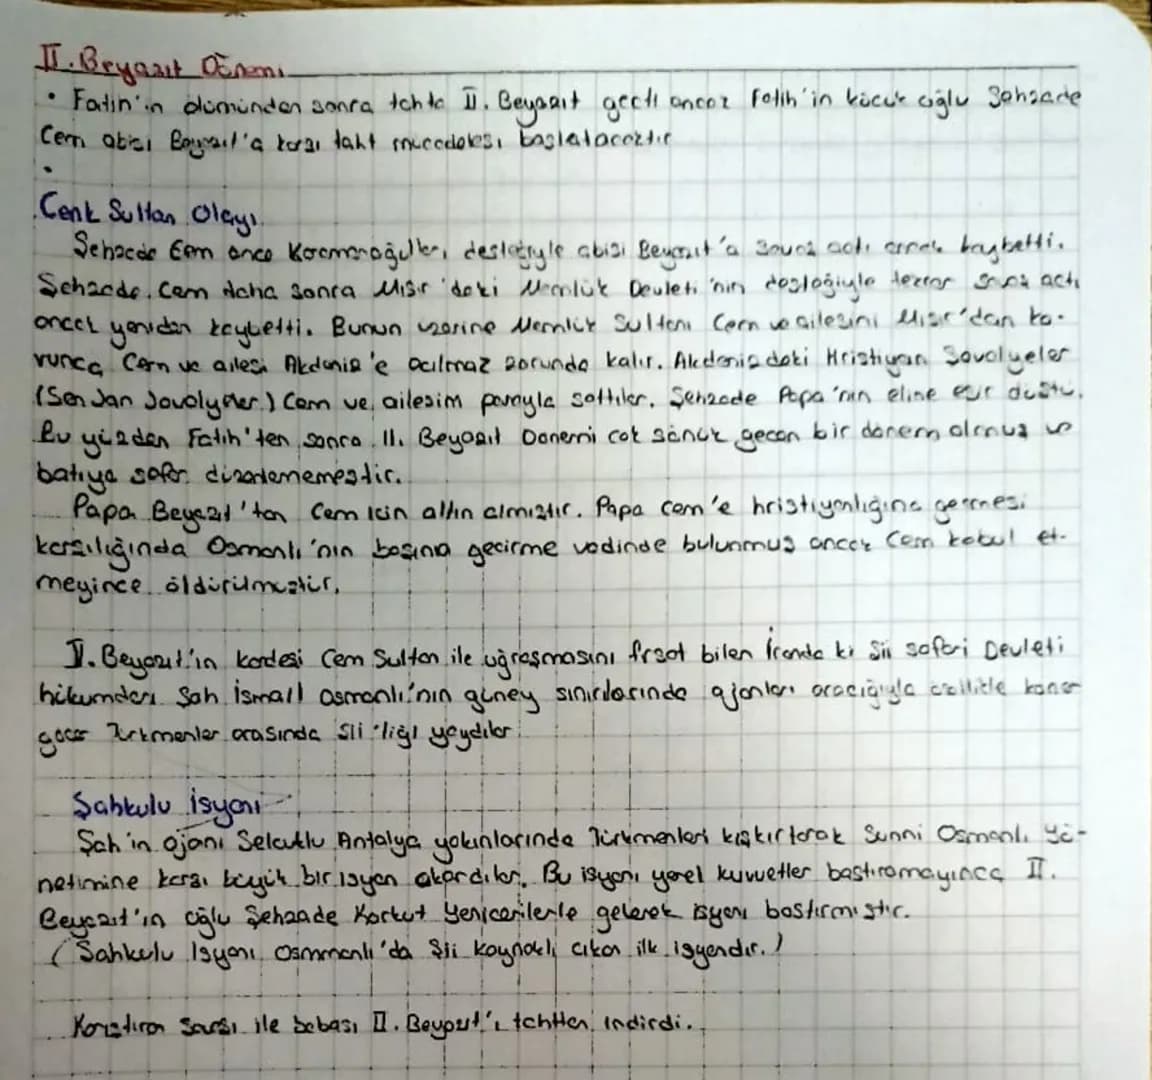 II. Beyazıt Dönemi
• Fatih'in ölümünden sonra tahta II. Beyazıt geçti ancak Fatih'in küçük oğlu Şehzade
Cem abisi Beyazıt'a karşı taht mücadelesi başlatacaktır
•
Cenk Sultan Olayı
Şehzade Cem önce Karamanoğulları desteğiyle abisi Beyazıt'a savaş açtı ancak kaybetti.
Şehzade Cem daha sonra Mısır'daki Memlük Devleti'nin desteğiyle tekrar savaş açtı
ancak yeniden kaybetti. Bunun üzerine Memlük Sultanı Cem ve ailesini Mısır'dan ko-
vunca Cem ve ailesi Akdeniz'e açılmaz zorunda kalır. Akdenizdeki Hristiyan Şovalyeler
(Sen Jan Şovalyeler) Cem ve ailesini parayla sattılar. Şehzade Papa'nın eline esir düştü.
Bu yüzden Fatih'ten sonra II. Beyazıt Dönemi çok sönük geçen bir dönem olmuş ve
batıya sefer düzenlememeştir.
Papa Beyazıt'tan Cem için altın almıştır. Papa cem'e hristiyanlığına geçmesi
karşılığında Osmanlı'nın başına geçirme vadinde bulunmuş ancak Cem kabul et-
meyince öldürülmüştür.
II. Beyazıt'ın kardeşi Cem Sultan ile uğraşmasını fırsat bilen İranda ki Şii safavi Devleti
hükümdarı Şah İsmail osmanlı'nın güney sınırlarında ajanları aracığıyla özellikle konar
göçer Türkmenler arasında Şii'liği yaydılar.
Şahkulu İsyanı
Şah'ın ajanı Selcuklu Antalya yakınlarında Türkmenleri kışkırtarak Sunni Osmanlı yö-
netimine karşı büyük bir isyan çıkardılar. Bu isyanı yerel kuvvetler bastıramayınca II.
Beyazıt'ın oğlu Şehzade Korkut Yeniçerilerle gelerek isyanı bastırmıştır.
(Şahkulu İsyanı Osmmanlı'da Şii kaynaklı çıkan ilk isyandır.)
savaşı ile babası II. Beyazıt'ı tahttan indirdi.